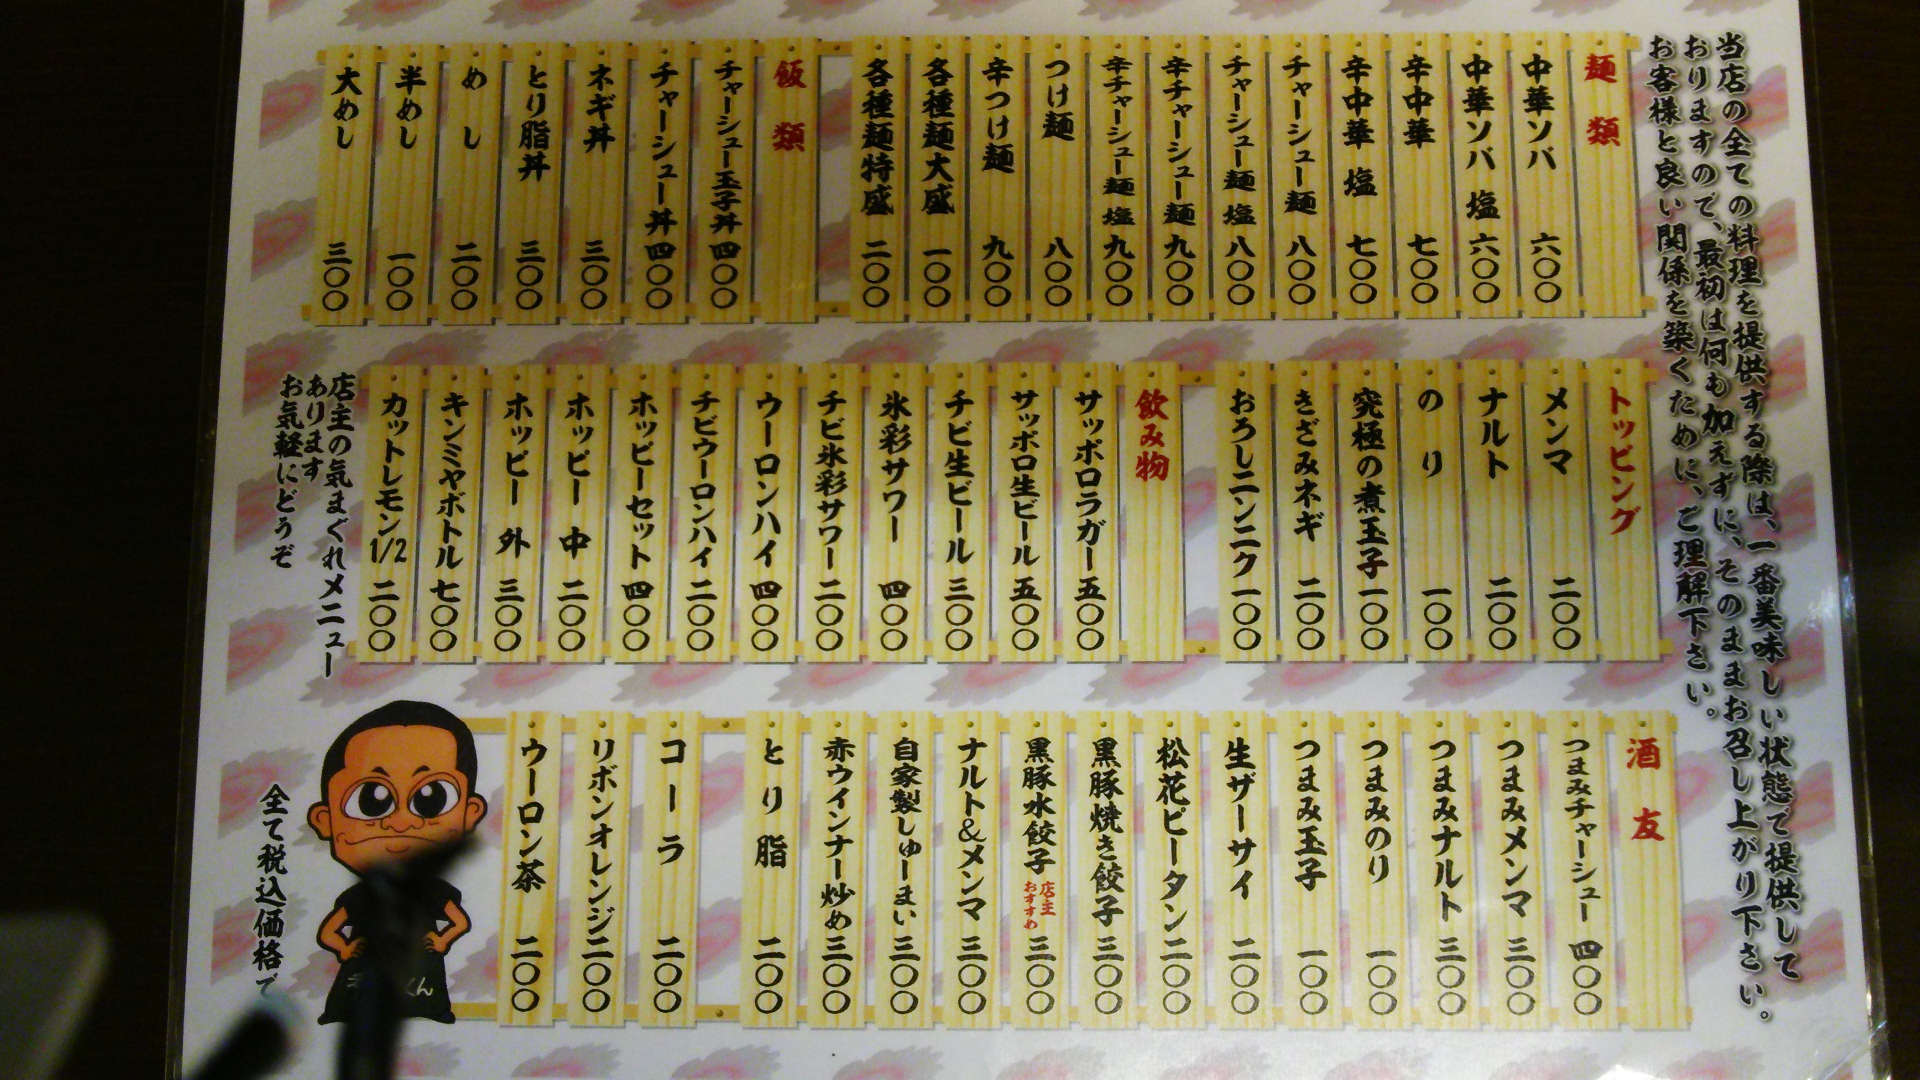 当店の全ての料理を提供する際は、一番美味しい状態で提供して
おりますので、最初は何も加えずに、そのままお召し上がり下さい。
お客様と良い関係を築くために、ご理解下さい。
麺類
中華ソバ 六〇〇
中華ソバ 塩 六〇〇
辛中華 七〇〇
辛中華 塩 七〇〇
チャーシュー麺 八〇〇
チャーシュー麺 塩 八〇〇
辛チャーシュー麺 九〇〇
辛チャーシュー麺 塩 九〇〇
つけ麺 八〇〇
辛つけ麺 九〇〇
各種麺大盛 一〇〇
各種麺特盛 二〇〇
飯類
チャーシュー玉子丼 四〇〇
チャーシュー丼 四〇〇
ネギ丼 三〇〇
とり脂丼 三〇〇
めし 二〇〇
半めし 一〇〇
大めし 三〇〇
トッピング
メンマ 二〇〇
ナルト 二〇〇
のり 一〇〇
究極の煮玉子 一〇〇
きざみネギ 二〇〇
おろしニンニク 一〇〇
飲み物
サッポロラガー 五〇〇
サッポロ生ビール 五〇〇
チビ生ビール 三〇〇
氷彩サワー 四〇〇
チビ氷彩サワー 二〇〇
ウーロンハイ 四〇〇
チビウーロンハイ 二〇〇
ホッピーセット 四〇〇
ホッピー 中 二〇〇
ホッピー 外 三〇〇
キンミヤボトル 七〇〇
カットレモン1/2 二〇〇
店主の気まぐれメニュー
あります
お気軽にどうぞ
酒友
つまみチャーシュー 四〇〇
つまみメンマ 三〇〇
つまみナルト 三〇〇
つまみのり 一〇〇
つまみ玉子 一〇〇
生ザーサイ 二〇〇
松花ピータン 二〇〇
黒豚焼き餃子 三〇〇
黒豚水餃子 店主おすすめ 三〇〇
ナルト&メンマ 三〇〇
自家製しゅーまい 三〇〇
赤ウインナー炒め 三〇〇
とり脂 二〇〇
コーラ 二〇〇
リボンオレンジ 二〇〇
ウーロン茶 二〇〇
くん
全て税込価格で